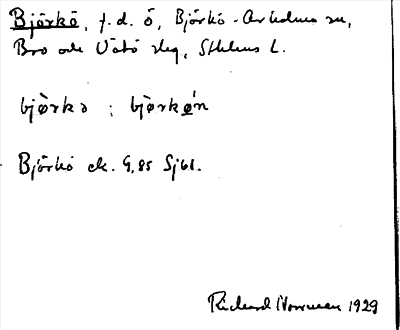 Björkö, f.d. ö, Björkö-Arholma sn,
Bro och Vätö skg, Sthlms L.
bjø̀rkə : bjø̀rkǿn
Björkö ek. G,85 Sjbl.
Rickard Norrman 1929